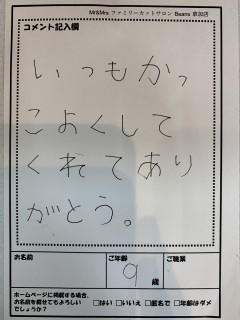 Mr&Mrs ファミリーカットサロン Beans 草加店
コメント記入欄
いつもかっ
こよくして
くれてあり
がとう。
お名前
ご年齢
ご職業
9 歳
ホームページに掲載する場合、
お名前を載せてもよろしい
でしょうか?
□はい □いいえ □匿名で □年齢はダメ